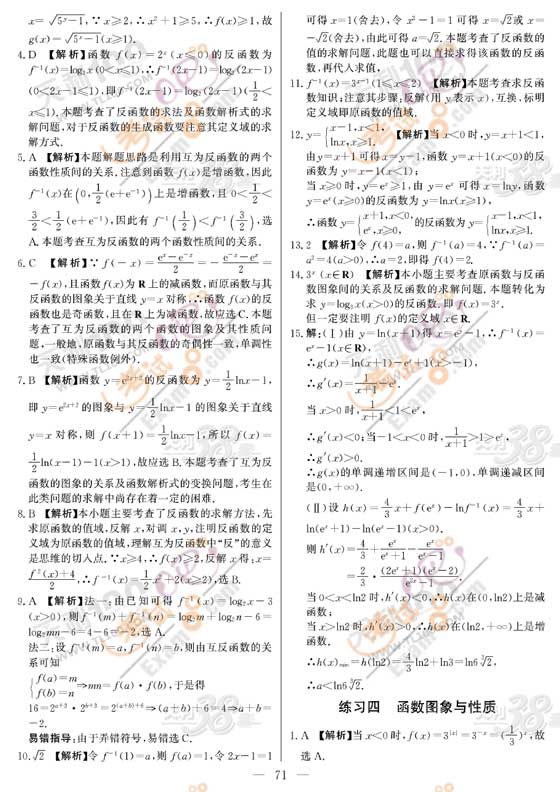 x=√(5^x−1),∵x≥2,∴x²+1≥5,∴f(x)≥1,故
g(x)=√(5^x−1)(x≥1).
4. D 【解析】函数 f(x)=2^x(x≤0)的反函数为
f⁻¹(x)=log₂x(0<x≤1),∴f⁻¹(2x−1)=log₂(2x−1)
(0<2x−1≤1),即f⁻¹(2x−1)=log₂(2x−1)(1/2<
x≤1).本题考查了反函数的求法及函数解析式的求
解问题,对于反函数的生成函数要注意其定义域的求
解方式.
5. A 【解析】本题解题思路是利用互为反函数的两个
函数性质间的关系.注意到函数f(x)是增函数,因此
f⁻¹(x)在(0,1/2(e+e⁻¹))上是增函数,且0<1/2<
3/2<1/2(e+e⁻¹),因此有f⁻¹(1/2)<f⁻¹(3/2),选
A.本题考查互为反函数的两个函数性质间的关系.
6. C 【解析】∵f(−x)=(e^x−e^−x)/2=−(e^−x−e^x)/2=
−f(x),且函数f(x)为R上的减函数,而原函数与其
反函数的图象关于直线y=x对称,∴函数f(x)的反
函数也是奇函数,且在R上为减函数,故应选C.本题
考查了互为反函数的两个函数的图象及其性质问
题,一般地,原函数与其反函数的奇偶性一致,单调性
也一致(特殊函数例外).
7. B 【解析】函数y=e^(2x+2)的反函数为y=1/2lnx−1,
即y=e^(2x+2)的图象与y=1/2lnx−1的图象关于直线
y=x对称,则f(x+1)=1/2lnx−1,所以f(x)=
1/2ln(x−1)−1(x>1),故应选B.本题考查了互为反
函数的图象的关系及函数解析式的变换问题,考生在
此类问题的求解中尚存在着一定的困难.
8. B 【解析】本小题主要考查了反函数的求解方法,先
求原函数的值域,反解x,对调x,y,注明反函数的定
义域为原函数的值域,理解互为反函数中“反”的意义
是思维的切入点.∵x≥4,∴f(x)≥2,反解x得:x=
(f²(x)+4)/2,∴f⁻¹(x)=1/2x²+2(x≥2),选B.
9. A 【解析】法一:由已知可得f⁻¹(x)=log₂x−3
(x>0),则f⁻¹(m)+f⁻¹(n)=log₂m+log₂n−6=
log₂mn−6=4−6=−2,选A.
法二:设f⁻¹(m)=a,f⁻¹(n)=b,则由互反函数的关
系可知
{f(a)=m
f(b)=n⇒mn=f(a)·f(b),于是得
16=2^(a+3)·2^(b+3)=2^((a+b)+6)⇒(a+b)+6=4⇒a+b=
−2.
易错指导:由于弄错符号,易错选C.
10. √2 【解析】令f⁻¹(1)=a,则f(a)=1,令2x−1=1
可得x=1(舍去),令x²−1=1可得x=√2或x=
−√2(舍去),由此可得a=√2.本题考查了反函数的
值的求解问题,此题也可以直接求得该函数的反函
数,再代入求值,
11. f⁻¹(x)=3^(x−1)(1≤x≤2) 【解析】本题考查求反函
数知识;注意其步骤:反解(用y表示x),互换,标明
定义域即原函数的值域.
12. y={x−1,x<1,
lnx,x≥1. 【解析】当x<0时,y=x+1<1,
由y=x+1可得x=y−1,函数y=x+1(x<0)的反
函数为y=x−1(x<1);
当x≥0时,y=e^x≥1,由y=e^x可得x=lny,函数
y=e^x(x≥0)的反函数为y=lnx(x≥1),
∴函数y={x+1,x<0,
e^x,x≥0,的反函数为y={x−1,x<1,
lnx,x≥1.
13. 2 【解析】令f(4)=a,则f⁻¹(a)=4,∵f⁻¹(a)=
a²=4(a>0),∴a=2,即得f(4)=2.
14. 3^x(x∈R) 【解析】本小题主要考查原函数与反函
数图象间的关系及反函数的求解问题.本题转化为
求y=log₃x(x>0)的反函数,即f(x)=3^x.
但一定要注明f(x)的定义域x∈R.
15. 解:(Ⅰ)由y=ln(x+1)得x=e^y−1,∴f⁻¹(x)=
e^x−1(x∈R),
∴g(x)=ln(x+1)−e^x+1(x>−1),
∴g′(x)=1/(x+1)−e^x.
当x>0时,1/(x+1)<1<e^x,
∴g′(x)<0;当−1<x<0时,1/(x+1)>1>e^x,
∴g′(x)>0.
∴g(x)的单调递增区间是(−1,0),单调递减区间
是(0,+∞).
(Ⅱ)设h(x)=4/3x+f(e^x)−lnf⁻¹(x)=4/3x+
ln(e^x+1)−ln(e^x−1)(x>0).
则h′(x)=4/3+e^x/(e^x+1)−e^x/(e^x−1)
=2/3·(2e^x+1)(e^x−2)/(e^2x−1).
当0<x<ln2时,h′(x)<0,∴h(x)在(0,ln2)上是减
函数;
当x>ln2时,h′(x)>0,∴h(x)在(ln2,+∞)上是增
函数.
∴h(x)min=h(ln2)=4/3ln2+ln3=ln6∛2,
∴a<ln6∛2.
练习四 函数图象与性质
1. A 【解析】当x<0时,f(x)=3^|x|=3^−x=(1/3)^x,故
选A.
— 71 —